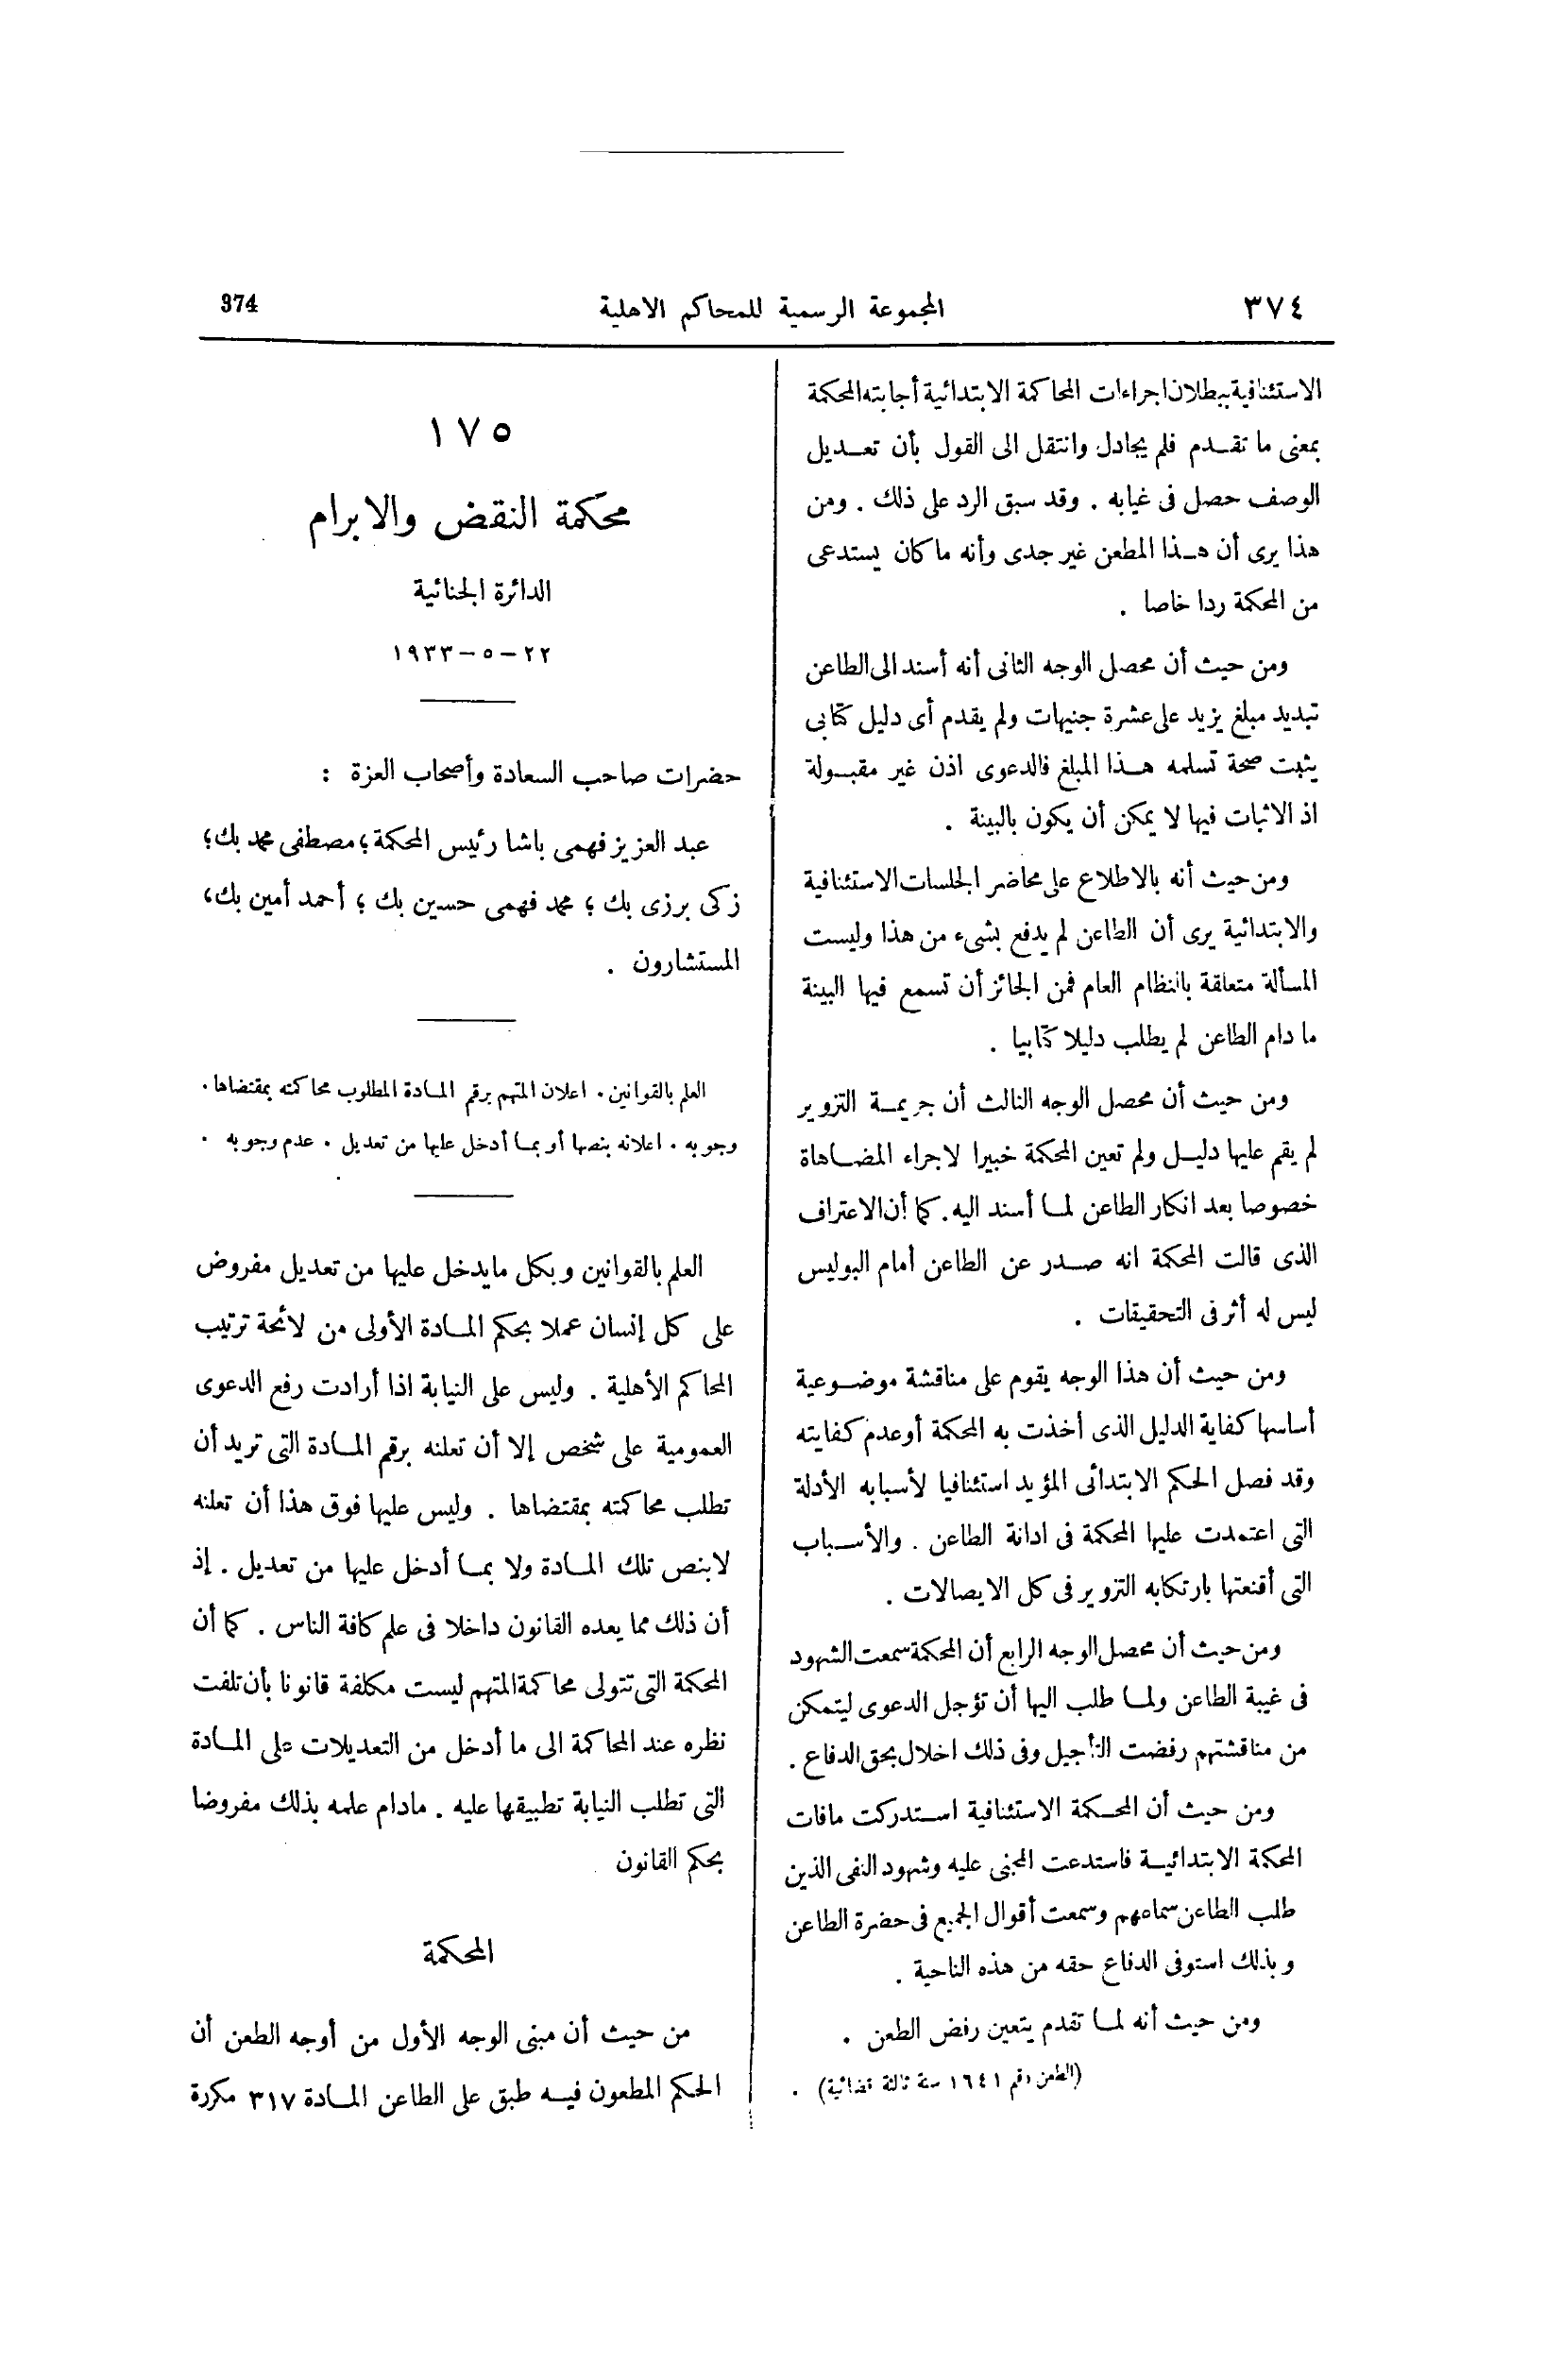 ٣٧٤
المجموعة الرسمية للمحاكم الاهلية
374
الاستئنافية ببطلان اجراءات المحاكمة الابتدائية أجابته المحكمة
بمعنى ما تقدم فلم يجادل وانتقل الى القول بأن تعديل
الوصف حصل فى غيابه . وقد سبق الرد على ذلك . ومن
هذا يرى أن هذا المطعن غير جدى وأنه ما كان يستدعى
من المحكمة ردا خاصا .
ومن حيث أن محصل الوجه الثانى أنه أسند الى الطاعن
تبديد مبلغ يزيد على عشرة جنيهات ولم يقدم أى دليل كتابى
يثبت صحة تسلمه هذا المبلغ فالدعوى اذن غير مقبولة
اذ الاثبات فيها لا يمكن أن يكون بالبينة .
ومن حيث أنه بالاطلاع على محاضر الجلسات الاستئنافية
والابتدائية يرى أن الطاعن لم يدفع بشىء من هذا وليست
المسألة متعلقة بالنظام العام فمن الجائز أن تسمع فيها البينة
ما دام الطاعن لم يطلب دليلا كتابيا .
ومن حيث أن محصل الوجه الثالث أن جريمة التزوير
لم يقم عليها دليل ولم تعين المحكمة خبيرا لاجراء المضاهاة
خصوصا بعد انكار الطاعن لما أسند اليه . كما أن الاعتراف
الذى قالت المحكمة انه صدر عن الطاعن أمام البوليس
ليس له أثر فى التحقيقات .
ومن حيث أن هذا الوجه يقوم على مناقشة موضوعية
أساسها كفاية الدليل الذى أخذت به المحكمة أو عدم كفايته
وقد فصل الحكم الابتدائى المؤيد استئنافيا لأسبابه الأدلة
التى اعتمدت عليها المحكمة فى ادانة الطاعن . والأسباب
التى أقنعتها بارتكابه التزوير فى كل الايصالات .
ومن حيث أن محصل الوجه الرابع أن المحكمة سمعت الشهود
فى غيبة الطاعن ولما طلب اليها أن تؤجل الدعوى ليتمكن
من مناقشتهم رفضت التأجيل وفى ذلك اخلال بحق الدفاع .
ومن حيث أن المحكمة الاستئنافية استدركت مافات
المحكمة الابتدائية فاستدعت المجنى عليه وشهود النفى الذين
طلب الطاعن سماعهم وسمعت أقوال الجميع فى حضرة الطاعن
وبذلك استوفى الدفاع حقه من هذه الناحية .
ومن حيث أنه لما تقدم يتعين رفض الطعن .
(الطعن رقم ١٦٤١ سنة ثالثة قضائية) .
١٧٥
محكمة النقض والابرام
الدائرة الجنائية
٢٢ – ٥ – ١٩٣٣
حضرات صاحب السعادة وأصحاب العزة :
عبد العزيز فهمى باشا رئيس المحكمة ؛ مصطفى محمد بك ؛
زكى برزى بك ؛ محمد فهمى حسين بك ؛ أحمد أمين بك ،
المستشارون .
العلم بالقوانين . اعلان المتهم برقم المادة المطلوب محاكمته بمقتضاها .
وجوبه . اعلانه بنصها أو بما أدخل عليها من تعديل . عدم وجوبه .
العلم بالقوانين وبكل مايدخل عليها من تعديل مفروض
على كل إنسان عملا بحكم المادة الأولى من لائحة ترتيب
المحاكم الأهلية . وليس على النيابة اذا أرادت رفع الدعوى
العمومية على شخص إلا أن تعلنه برقم المادة التى تريد أن
تطلب محاكمته بمقتضاها . وليس عليها فوق هذا أن تعلنه
لابنص تلك المادة ولا بما أدخل عليها من تعديل . إذ
أن ذلك مما يعده القانون داخلا فى علم كافة الناس . كما أن
المحكمة التى تتولى محاكمة المتهم ليست مكلفة قانونا بأن تلفت
نظره عند المحاكمة الى ما أدخل من التعديلات على المادة
التى تطلب النيابة تطبيقها عليه . مادام علمه بذلك مفروضا
بحكم القانون
المحكمة
من حيث أن مبنى الوجه الأول من أوجه الطعن أن
الحكم المطعون فيه طبق على الطاعن المادة ٣١٧ مكررة